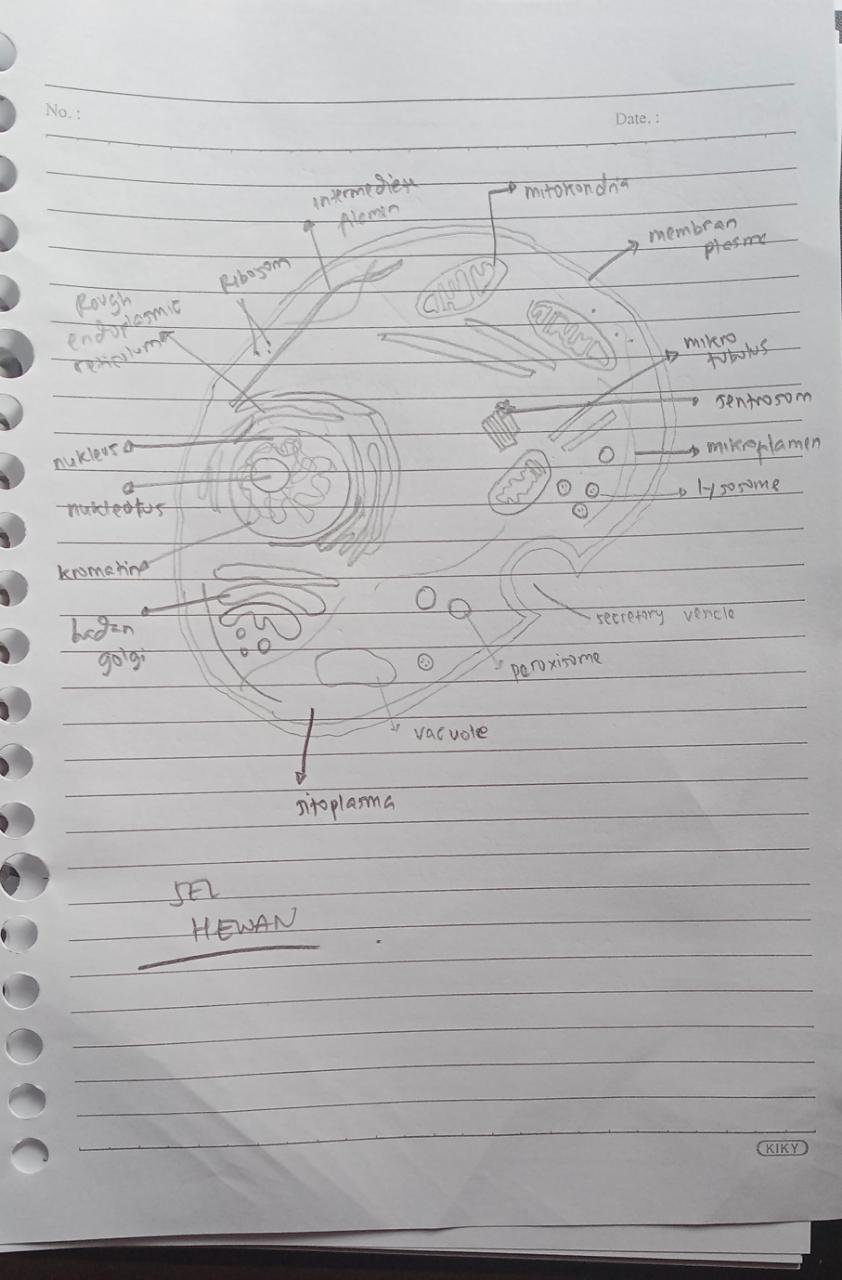 No. :
Date. :
intermediet
filemen
mitokondria
membran
plasma
Ribosom
Rough
endoplasmic
reticulum
mikro
tubulus
sentrosom
nukleus
mikroplamen
lysosome
nukleolus
kromatin
secretory vesicle
badan
golgi
peroxisome
vacuole
sitoplasma
SEL
HEWAN
KIKY